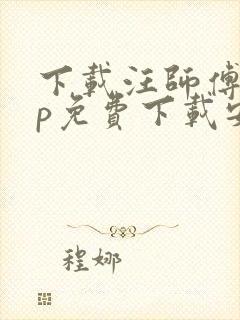 下載汪師傅
p免費下載安
程娜